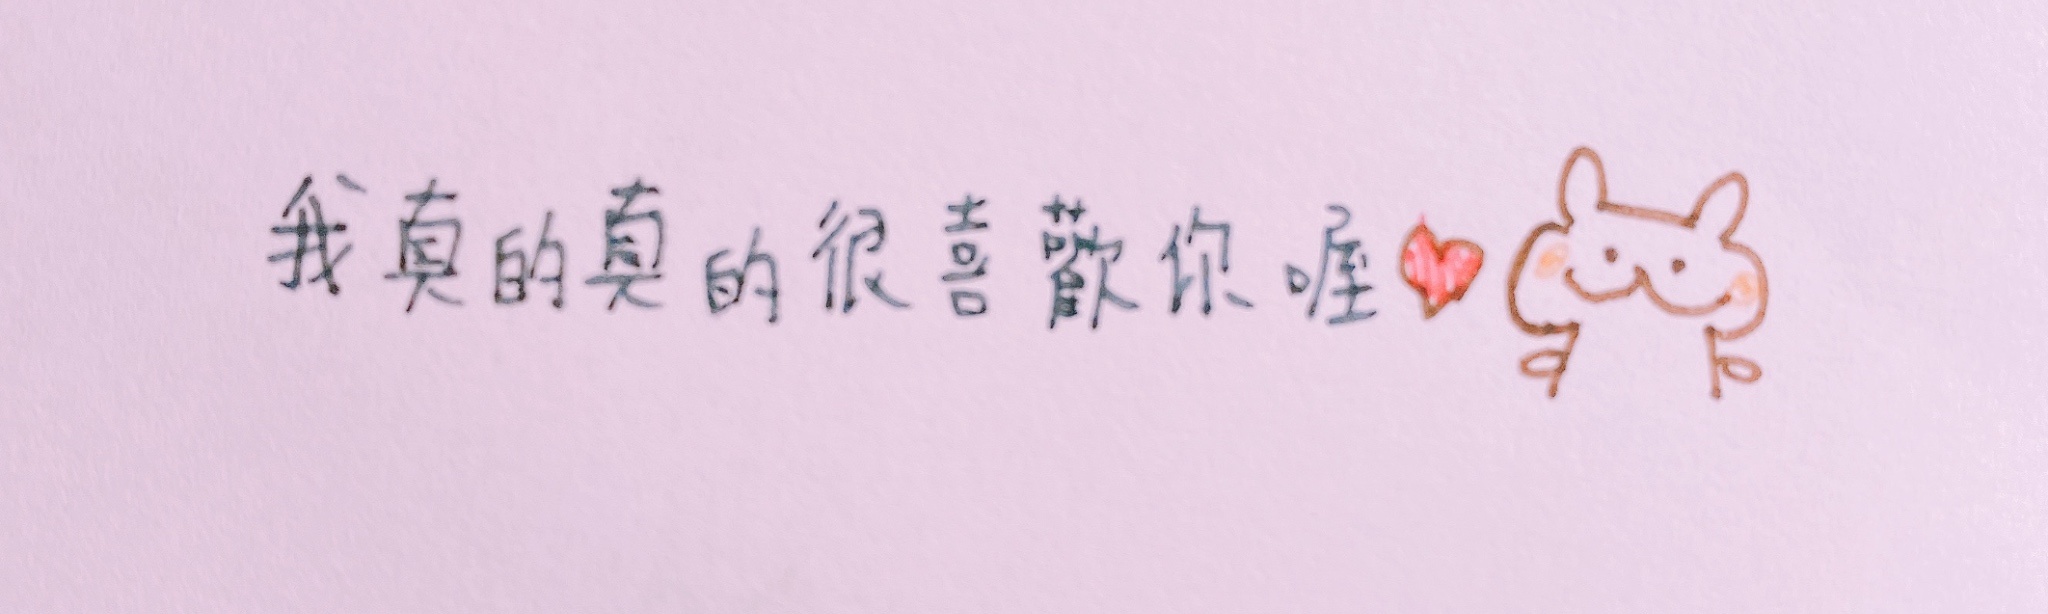 我真的真的很喜歡你喔